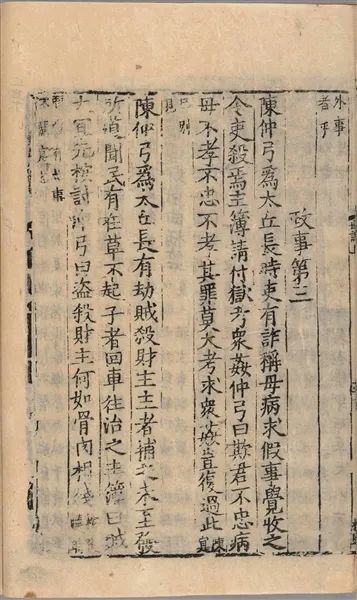 外事
者乎
政事第三
陳仲弓為太丘長時吏有詐稱母病求假事覺收之
令吏殺焉主簿請付獄考衆姦仲弓曰欺君不忠病
母不孝不忠不孝其罪莫大考求衆姦豈復過此陳寔
已別
見
陳仲弓爲太丘長有劫賊殺財主主者捕之未至發
所道聞民有在草不起子者回車往治之主簿曰賊
大宜先按討仲弓曰盜殺財主何如骨肉相殘